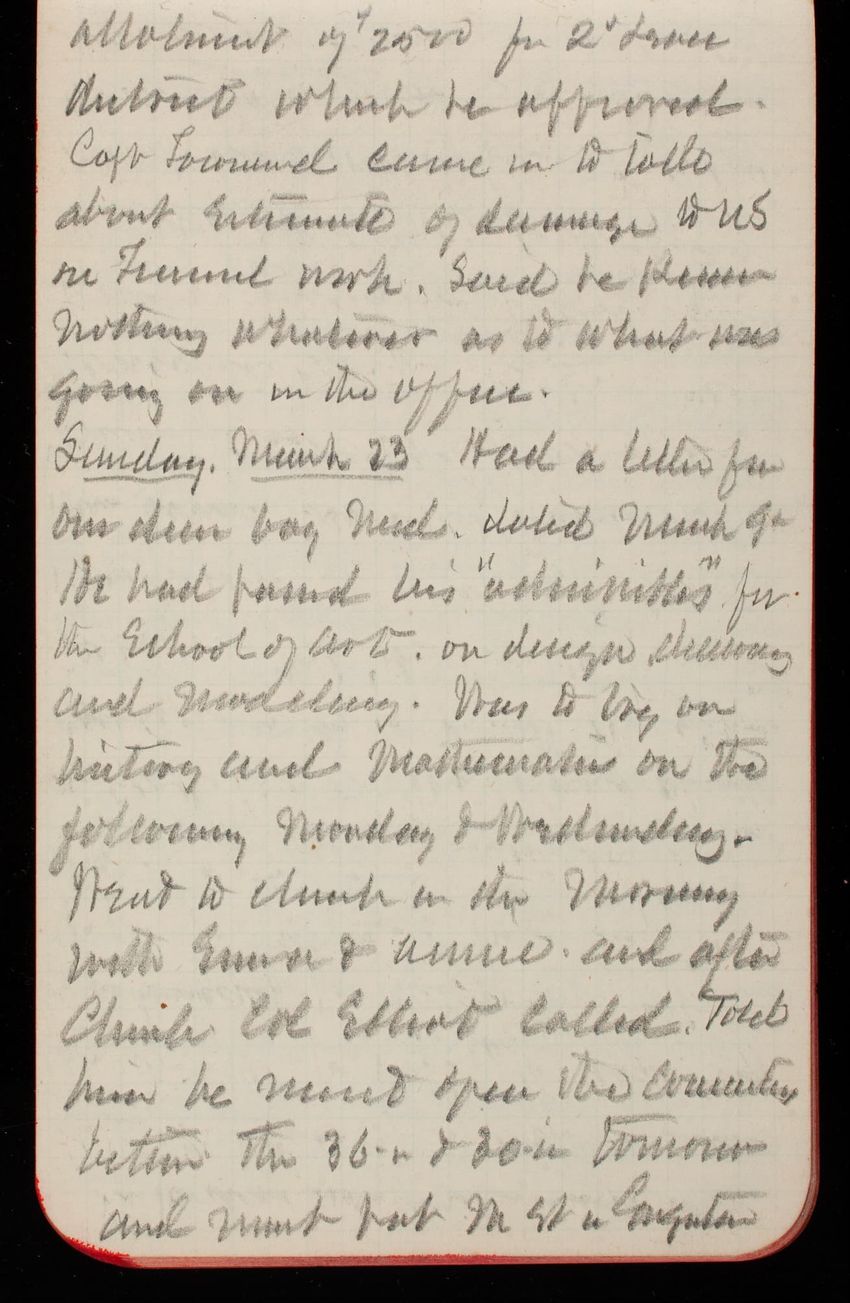 allotment of $2500 for 2d
district which he approved.
Capt Townsend came in to talk
about Estimate of damage to US
on Tunnel work. Said he knew
nothing whatever as to what was
going on in the office.
Sunday. March 23 Had a letter from
our dear boy Ned. dated March 9
He had passed his "admissibles" for
the School of art. on design drawing
and modeling. Was to be on
history and Mathematics on the
following Monday & Wednesday.
Went to church in the Morning
with & and after
Church Col Elliot called. Told
him he must open the connection
between the 36 in & 30 in tomorrow
and must put M St in